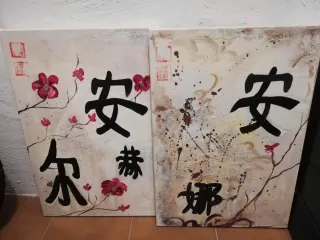 安
赫
尔
安
娜